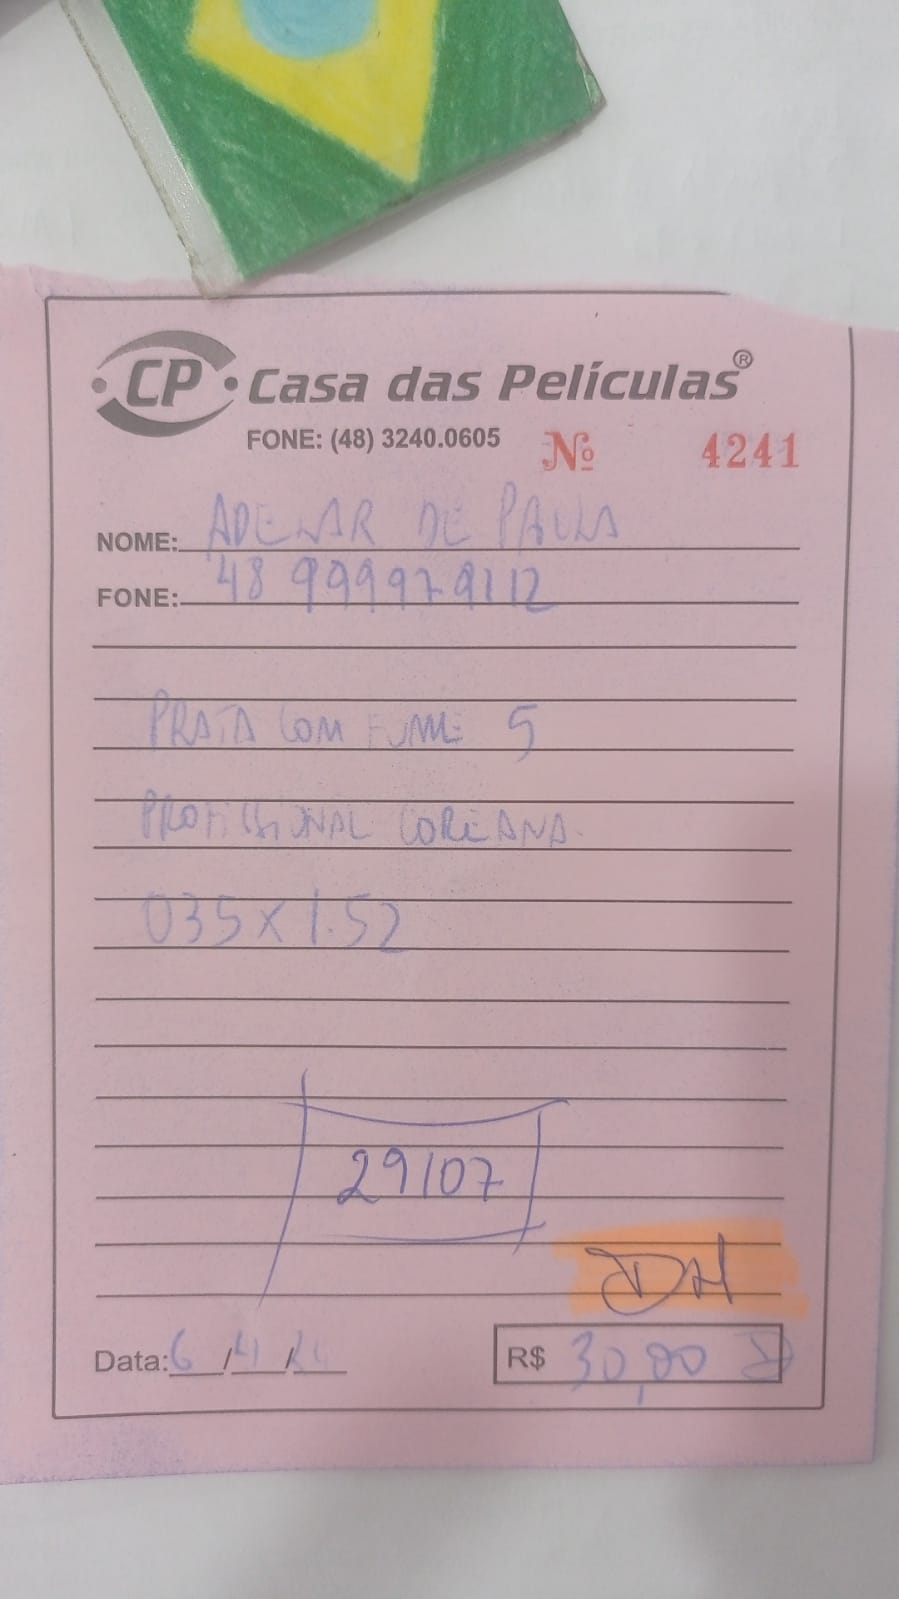 CP Casa das Películas®
FONE: (48) 3240.0605
Nº 4241
NOME: ADEMAR DE PAULA
FONE: 48 999979112
PRATA COM FUME 5
PROFISSIONAL COREANA
035 x 1.52
29107
DH
Data: 6/4/24
R$ 30,00